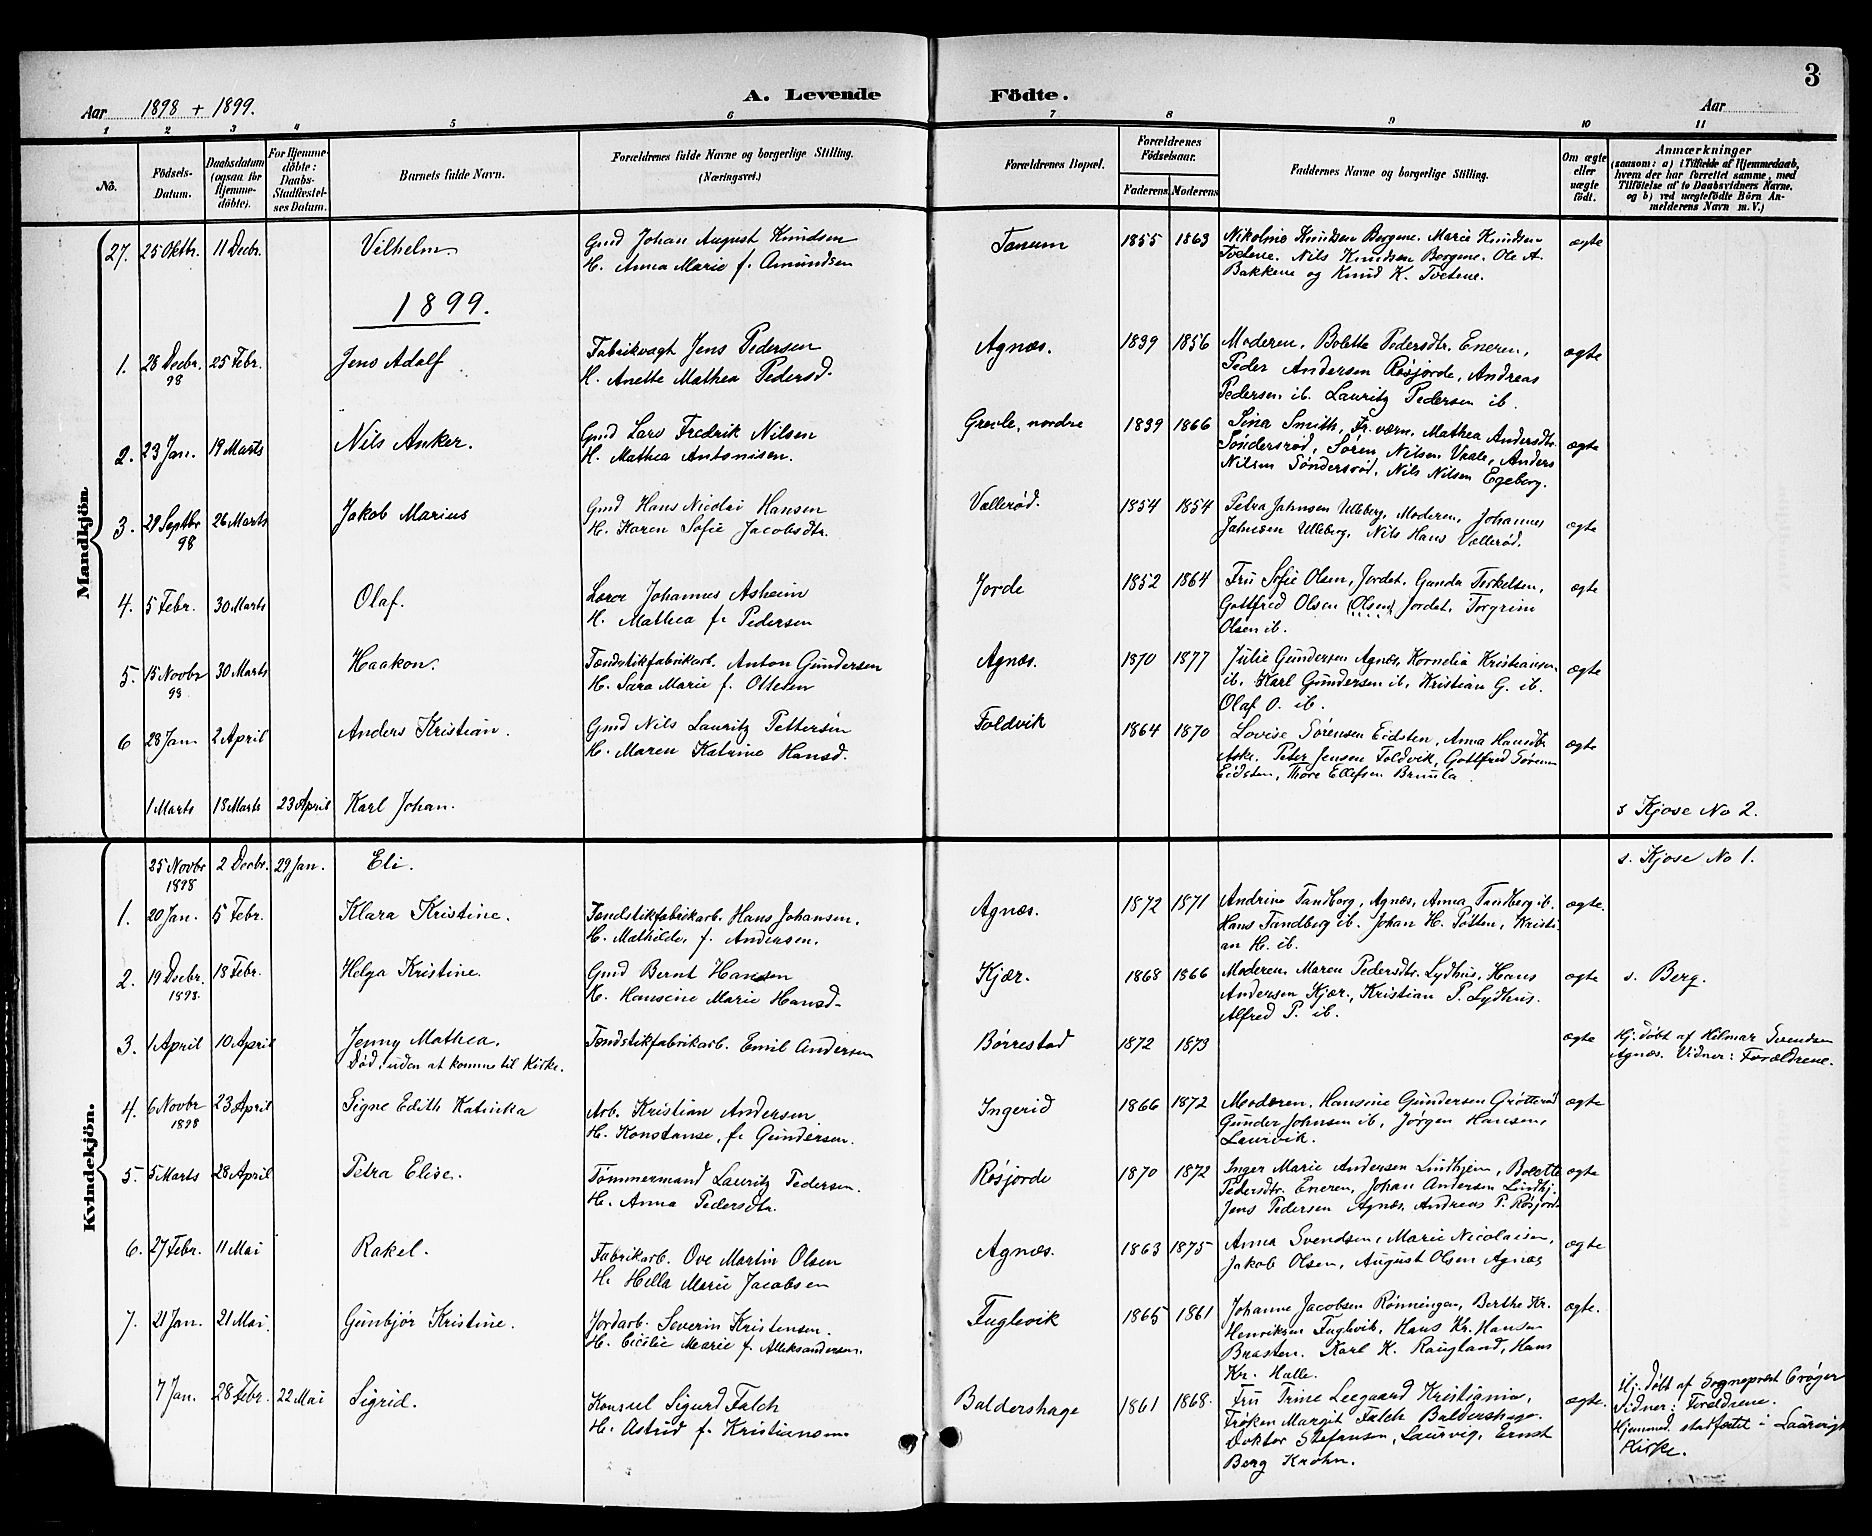 3
Aar 1898 + 1899.
A. Levende Födte.
Aar
1 2 3 4 5 6 7 8 9 10 11
No.
Födsels-Datum.
Daabsdatum (ogsaa for Hjemme-döbte).
For Hjemme-döbte: Daabs-Stadfæstel-ses Datum.
Barnets fulde Navn.
Forældrenes fulde Navne og borgerlige Stilling. (Næringsvei.)
Forældrenes Bopæl.
Forældrenes Födselsaar.
Faderens Moderens
Faddernes Navne og borgerlige Stilling.
Om ægte eller uægte födt.
Anmærkninger
(saasom: a) i Tilfælde af Hjemmedaab,
hvem der har forrettet samme, med
Tilföielse af to Daabsvidners Navne.
og b) ved uægtefödte Börn An-
melderens Navn m. V.)
Mandkjön.
27. 25 Oktbr. 11 Decbr. Vilhelm. Gmd Johan August Knudsen Tanum 1855 1863 Nikoline Knudsen Bergene. Marie Knudsen ægte
H. Anna Marie f. Amundsen Tvetene. Nils Knudsen Bergene. Ole A.
Bakkene og Knud K. Tvetene.
1899.
1. 26 Decbr. 98 25 Febr. Jens Adolf Fabrikvagt Jens Pedersen Agnæs. 1839 1856 Moderen, Bolette Pedersdtr. Eneren, ægte
H. Anette Mathea Pedersd. Peder Andersen Røsjorde, Andreas
Pedersen ib. Lauritz Pedersen ib.
2. 23 Jan. 19 Marts Nils Anker. Gmd Lars Fredrik Nilsen Grevle, nordre 1839 1866 Lina Smith, Fr.værn, Mathea Andersdtr. ægte
H. Mathea Antonisen. Søndersrød, Søren Nilsen Vaale, Anders
Nilsen Søndersrød, Nils Nilsen Egeberg.
3. 29 Septbr 98 26 Marts Jakob Marius Gmd Hans Nicolai Hansen Vallerød. 1854 1854 Petra Jahnsen Ulleberg, Moderen, Johannes ægte
H. Karen Sofie Jacobsdtr. Jahnsen Ulleberg, Nils Hans Vallerød.
4. 5 Febr. 30 Marts Olaf. Lærer Johannes Asheim Jorde 1852 1864 Fru Sofie Olsen, Jordet, Gunda Terkelsen, ægte
H. Mathea f. Pedersen Gottfred Olsen (Olsen) Jordet, Torgrim
Olsen ib.
5. 15 Novbr 98 30 Marts Haakon. Tændstikfabrikarb. Anton Gundersen Agnæs. 1870 1877 Julie Gundersen Agnæs, Kornelia Kristiansen ægte
H. Sara Marie f. Ottesen ib. Karl Gundersen ib, Kristian G. ib.
Olaf O. ib.
6 28 Jan 2 April Anders Kristian. Gmd Nils Lauritz Pettersen Foldvik 1864 1870 Lovise Sørensen Eidsten, Anna Hansdtr ægte
H. Maren Katrine Hansd. Aske. Peter Jensen Foldvik, Gottfred Sørensen
Eidsten, Thore Ellefsen Brunla
1 Marts 18 Marts 23 April Karl Johan. s Kjose No 2.
Kvindekjön.
25 Novbr 1898 2 Decbr. 29 Jan. Eli. s. Kjose No 1.
1. 20 Jan. 5 Febr. Klara Kristine. Tændstikfabrikarb. Hans Johansen. Agnæs. 1872 1871 Andrine Tandberg, Agnæs, Anna Tandberg ib. ægte.
H. Mathilde, f. Andersen. Hans Tandberg ib. Johan H. Totten, Kristi-
an H. ib.
2. 19 Decbr. 1898. 18 Febr. Helga Kristine. Gmd Bernt Hansen Kjær. 1868 1866 Moderen, Maren Pedersdtr. Lydhus, Hans ægte s. Berg.
H. Hansine Marie Hansd. Andersen Kjær, Kristian P. Lydhus.
Alfred P. ib.
3. 1 April 10 April Jenny Mathea. Tændstikfabrikarb. Emil Andersen Børrestad 1872 1873 ægte Hj. døbt af Hilmar Svendsen
Død, uden at komme til Kirke. Agnæs. Vidner: Forældrene.
4. 6 Novbr 1898 23 April Signe Edith Katinka Arb. Kristian Andersen Ingerid 1866 1872 Moderen, Hansine Gundersen Grøtterød ægte
H. Konstanse, f. Gundersen. Gunder Johnsen ib, Jørgen Hansen,
Laurvik.
5. 5 Marts 28 April Petra Elise. Tømmermand Lauritz Pedersen. Røsjorde 1870 1872 Inger Marie Andersen Lindhjem, Bolette ægte
H. Anna Pedersdtr. Pedersdtr. Eneren, Johan Andersen Lindhj.
Jens Pedersen Agnæs, Andreas P. Røsjorde
6. 27 Febr. 11 Mai Rakel. Fabrikarb. Ove Martin Olsen Agnæs. 1863 1875 Anna Svendsen, Marie Nicolaisen, ægte
H. Hella Marie Jacobsen Jakob Olsen, August Olsen Agnæs
7. 21 Jan. 21 Mai Gunbjør Kristine. Jordarb. Severin Kristensen. Fuglevik 1865 1861 Johanne Jacobsen Rønningen, Berthe Kr. ægte.
H. Cicilie Marie f. Alleksandersen. Henriksen Fuglevik, Hans Kr. Hansen
Brasten. Karl H. Raugland, Hans
Kr. Halle.
7 Jan. 28 Febr. 22 Mai Sigrid. Konsul Sigurd Falch Baldershage 1861 1868. Fru Trine Leegaard Kristiania, ægte. Hj. døbt af Sogneprest Crøger
H. Astrid f. Kristiansen Frøken Margit Falch Baldershage. Vidner: Forældrene.
Doktor Stefansen, Laurvig, Ernst Hjemmed. stadfæstet i Laurvigs
Berg Krohn. Kirke.